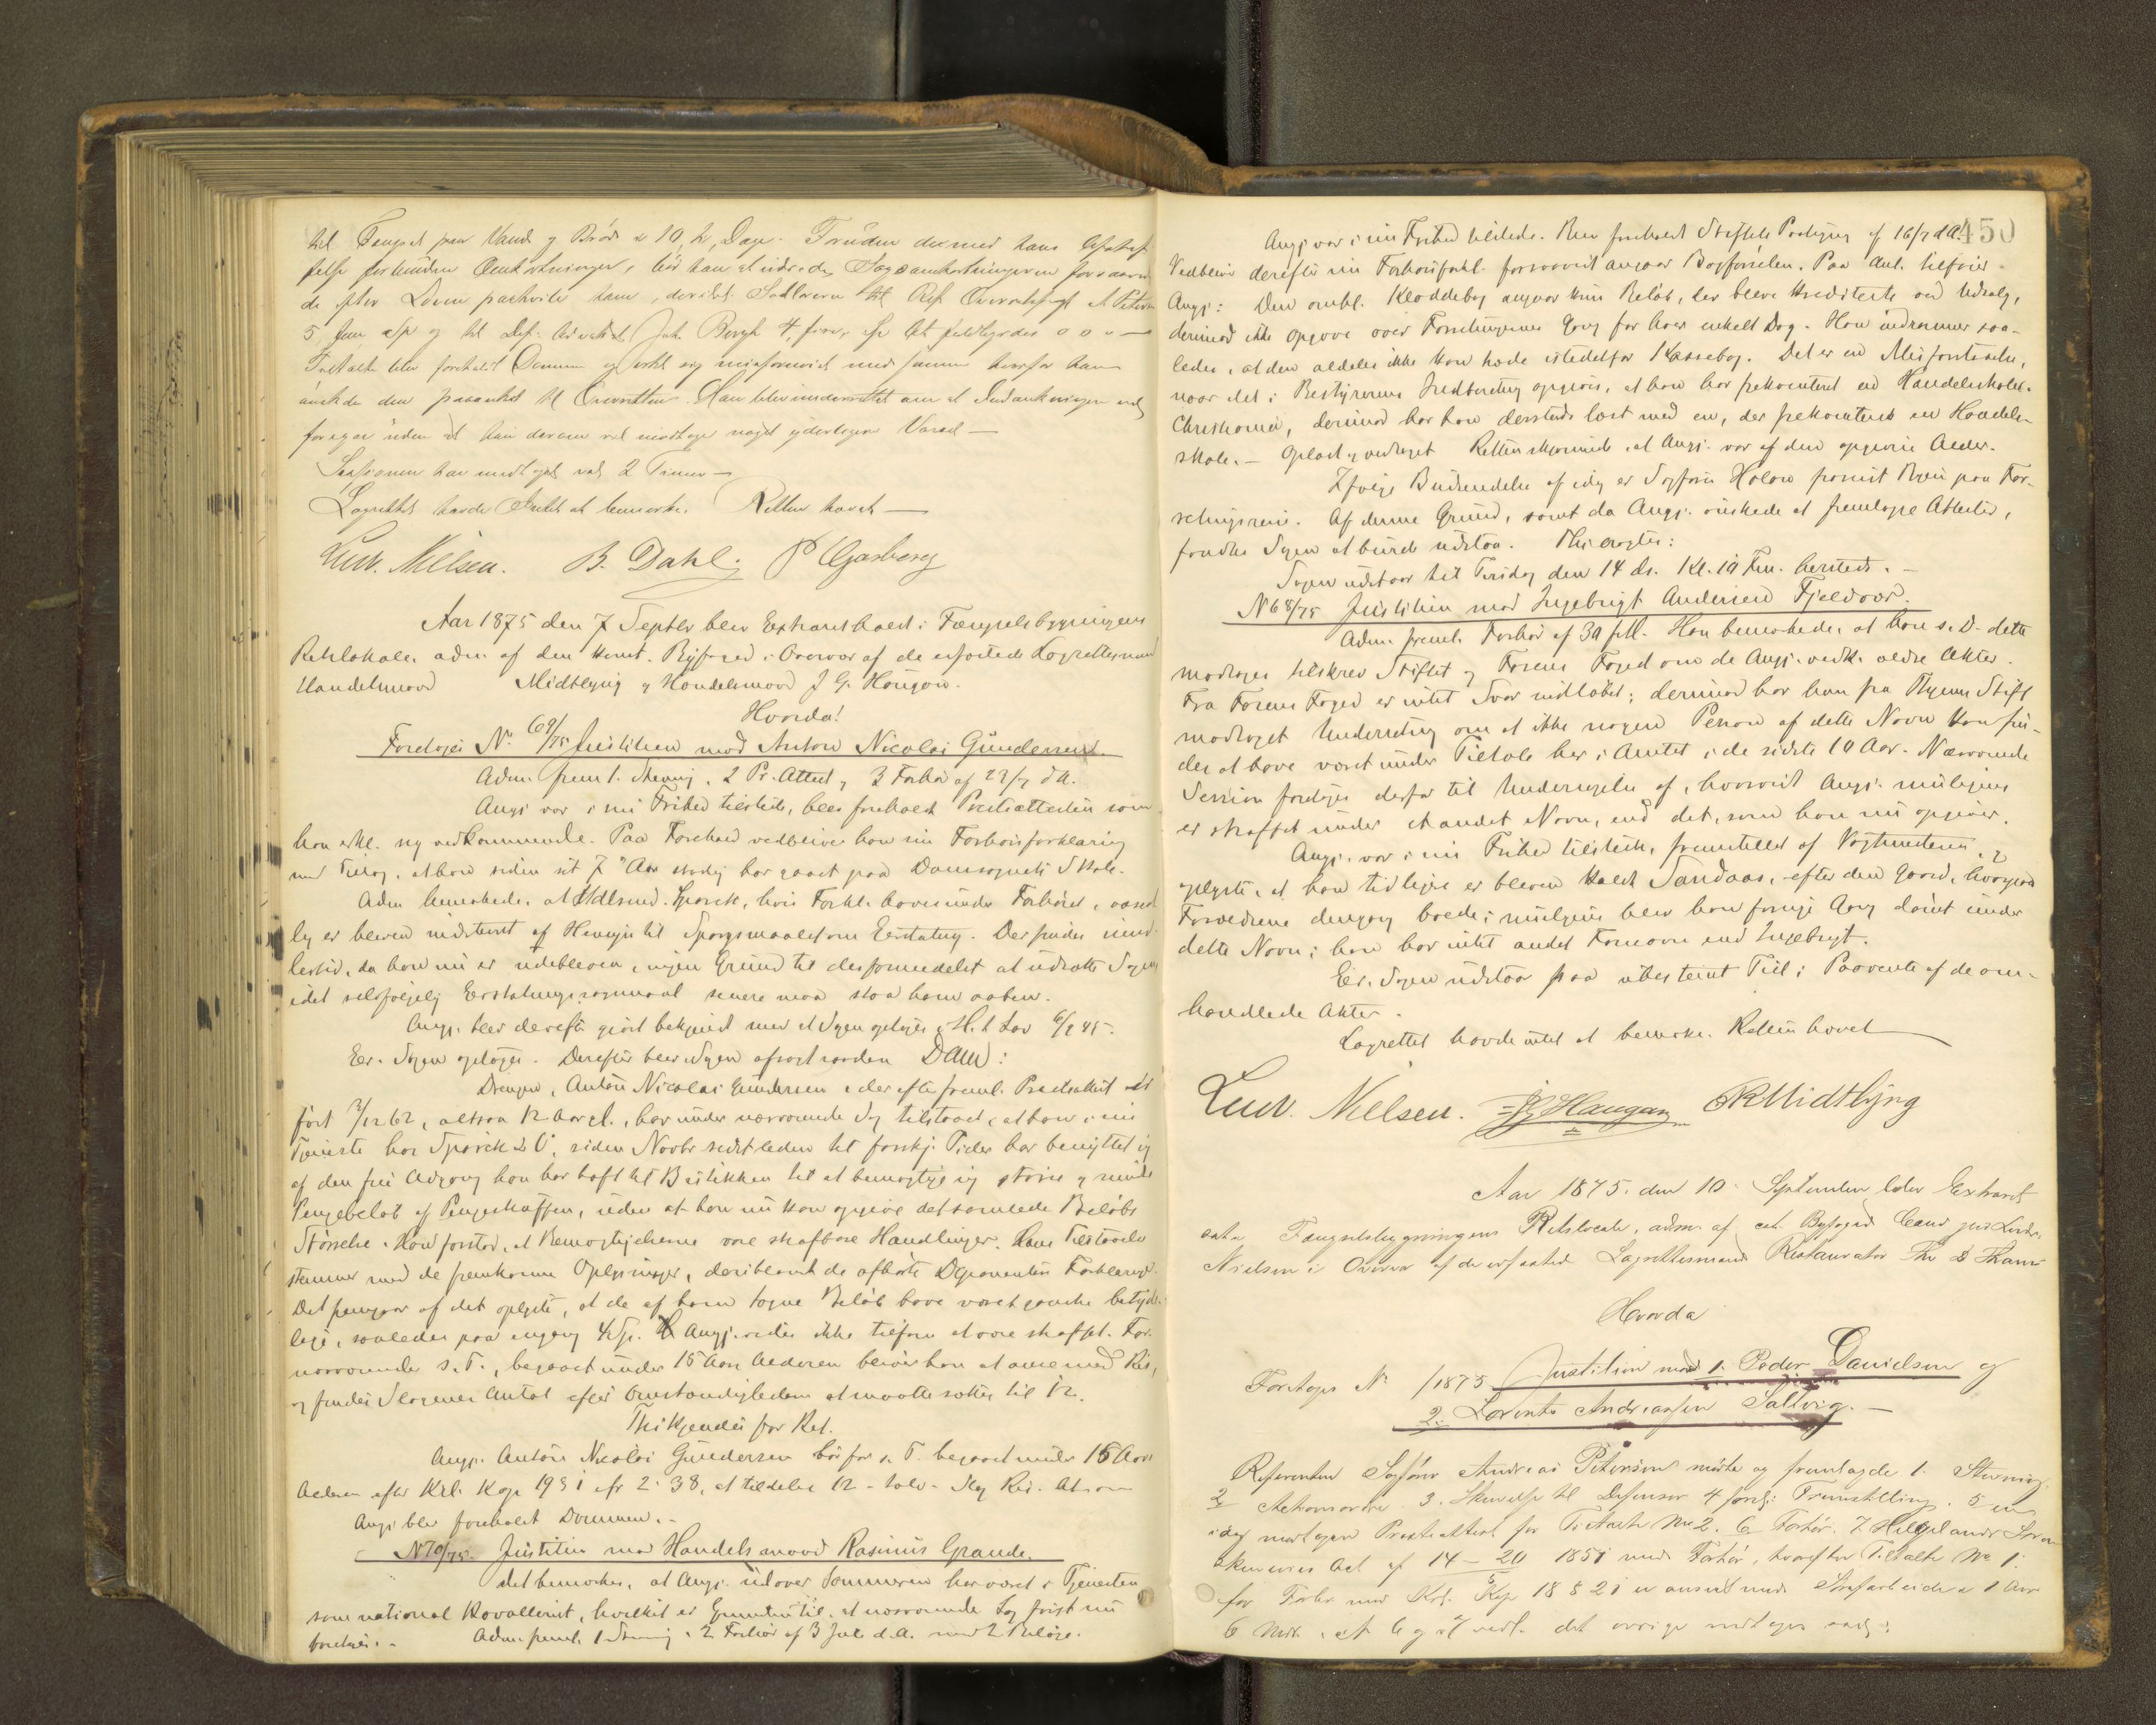 til Fængsel paa Vand og Brød i 10, ti, Dage. Foruden de med hans Afstraf-
felse forbundne Omkostninger, bør han at udrede Sagsomkostningerne forsaavidt
de efter Loven paahvile ham, deriblt. Sallærer til Ref. Overretssagf. A Petersen
5, fem Sp og til Def. Advokat Joh. Bergh 4, fire, Sp At fuldbyrdes o o o —
Tiltalte blev foreholdt Dommen og erkl. sig misfornøiet med samme hvorfor han
ønskede den paaanket til Overretten. Han blev underrettet om at Indankningen vil
foregaa uden at han derom vil modtage noget yderligere Varsel —
Sessionen har medtaget vel 2 Timer —
Lagrettet havde Intet at bemærke. Retten hævet —
Ludv. Nielsen. B. Dahl. P Gjasberg
Aar 1875 den 7 Septbr blev Extraret holdt i Fængselsbygningens
Retslokale, adm. af den konst. Byfoged i Overvær af de edfæstede Lagrettesmænd
Handelsmand Midtlyng og Handelsmand J G. Haugan.
Hvorda!
Foretoges No. 69/75 Justitien mod Anton Nicolai Gundersen.
Adm. freml. 1 Stevning, 2 Pr. Attest og 3 Forhør af 29/7 d A.
Angj var i sin Frihed tilstede, blev foreholdt Præsteattesten som
han erkl. sig vedkommende. Paa Forehold vedbliver han sin Forhørsforklaring
med Tillæg, at han siden sit 7de Aar stadig har gaaet paa Domsognets Skole.
Adm bemærkede, at Udsend. Sporck, hvis Forkl. haves under Forhøret, væsent-
lig er bleven indstevnt af Hensyn til Spørgsmaalet om Erstatning. Der findes imid-
lertid, da han nu er udebleven, ingen Grund til desformedelst at udsætte Sagen
idet selvfølgelig Erstatningssøgsmaal senere maa staa ham aaben.
Angj. blev derefter gjort bekjendt med at Sagen optages i H. t. Lov 6/9 45.
Er. Sagen optages. Derefter blev i Sagen afsagt saadan Dom:
Drengen, Anton Nicolai Gundersen, der efter freml. Præsteattest er
født 3/12 62, altsaa 12 Aar gl., har under nærværende Sag tilstaaet, at han i sin
Tjeneste hos Sporck & C, siden Novbr sidstleden til forskj. Tider har benyttet sig
af den frie Adgang han har haft til Butikken til at bemægtige sig større og mindre
Pengebeløb af Pengeskuffen, uden at han nu kan opgive det samlede Beløbs
Størrelse. Han forstod, at Bemægtigelserne vare strafbare Handlinger. Hans Tilstaaelse
stemmer med de fremkomne Oplysninger, deriblandt de afhørte Deponenters Forklaringer.
Det fremgaar af det oplyste, at de af ham tagne Beløb have været ganske betyde-
lige, saaledes paa engang 4 Sp. Angj. sees ikke tilforn at være straffet. For
nærværende s. T., begaaet under 15 Aars Alderen bliver han at anse med Ris,
og findes Slagenes Antal efter Omstændighederne at maatte sættes til 12.
Thi kjendes for Ret.
Angj. Anton Nicolai Gundersen bør for s. T. begaaet under 15 Aars
Alderen efter Krl. Kap 19 § 1 cfr 2: 38, at tildeles 12 - tolv - Slag Ris. At
Angj blev foreholdt Dommen. -
N 70/75. Justitien mod Handelsmand Rasmus Grande.
Det bemærkes, at Angj. udover Sommeren har været i Tjenesten
som national Kavallerist, hvilket er Grunden til, at nærværende Sag først nu
foretages. - Adm. freml. 1 Stevning, 2 Forhør af 3 Juli d. A. med 2 Bilage.
450
Angj var i sin Frihed tilstede. Blev foreholdt Stiftets Paategning af 16/7 d A.
Vedbliver derefter sin Forhørsforkl. forsaavidt angaar Bogførselen. Paa Anl. tilføier
Angj: Den omhl. Kladdebog angaar kun Beløb, der bleve krediterte ved Udsalg,
derimod ikke Opgave over Forretningernes Gang for hver enkelt Dag. Han indrømmer saa-
ledes, at den aldeles ikke kan træde istedetfor Kassebog. Det er en Misforstaaelse,
naar det i Bestyrerens Indberetning opgives, at han har frekventeret en Handelsskole i
Christiania, derimod har han dersteds læst med en, der frekventerte en Handels-
skole. — Oplæst og vedtaget Retten skjønnede, at Angj. var af den opgivne Alder.
Ifølge Budsendelse af idag er Sagfører Holow fraveist Byen paa For-
retningsreise. Af denne Grund, samt da Angj. ønskede at fremlægge Attester,
fandtes Sagen at burde udstaa. Thi eragtes:
Sagen udstaar til Tirsdag den 14 ds. Kl. 10 Fm. hersteds. -
N 68/75 Justitien mod Ingebrigt Andersen Fjeldvær.
Adm. freml. Forhør af 30 f. M. Han bemærkede, at han s. D. dette
modtoges tilskrev Stiftet og Fosens Foged om de Angj. vedk. ældre Akter.
Fra Fosens Foged er intet Svar indløbet; derimod har han fra Stift
modtaget Underretning om at ikke nogen Person af dette Navn kan fin-
des at have været under Tiltale her i Amtet i de sidste 10 Aar. Nærværende
Session foretages derfor til Undersøgelse af, hvorvidt Angj. muligens
er straffet under et andet Navn, end det, som han nu opgiver.
Angj. var i sin Frihed tilstede, fremstillet af Vagtmesteren, og
oplyste, at han tidligere er bleven kaldt Sandaas, efter den Gaard, hvorpaa
Forældrene dengang boede; muligens blev han forrige Gang dømt under
dette Navn; han har intet andet Fornavn end Ingebrigt.
Er. Sagen udstaar paa ubestemt Tid i Paavente af de om-
handlede Akter.
Lagrettet havde intet at bemærke. Retten hævet
Ludv. Nielsen. J G Haugan Midtlyng
Aar 1875. den 10. September blev Extraret
sat i Fængselsbygningens Retslocale, adm. af cst. Byfoged Cand jur Ludv.
Nielsen i Overvær af de edfæstede Lagrettesmænd Restauratør
Hvorda
Foretoges No /1875 Justitien mod 1. Peder Danielsen og
2. Lorents Andreassen Saltvig. —
Referenten Sagfører Andreas Petersen mødte og fremlagde 1. Stevning
2 Actionsordre. 3. Skrivelse til Defensor 4 forelg. Fremstilling. 5 en
idag modtagen Præsteattest for Tiltalte No 2. 6 Forhør. 7. Helgelands
skrivers Act af 14 — 20 1851 med Forhør, hvorefter Tiltalte No 1.
for Forbr. mod Krl. Kap 18 § 21 er anseet med Strafarbeide i 1 Aar
6 Mdr. det øvrige